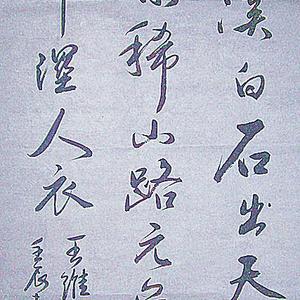 溪白石出天
稀山路元
濕人衣
王維
壬辰